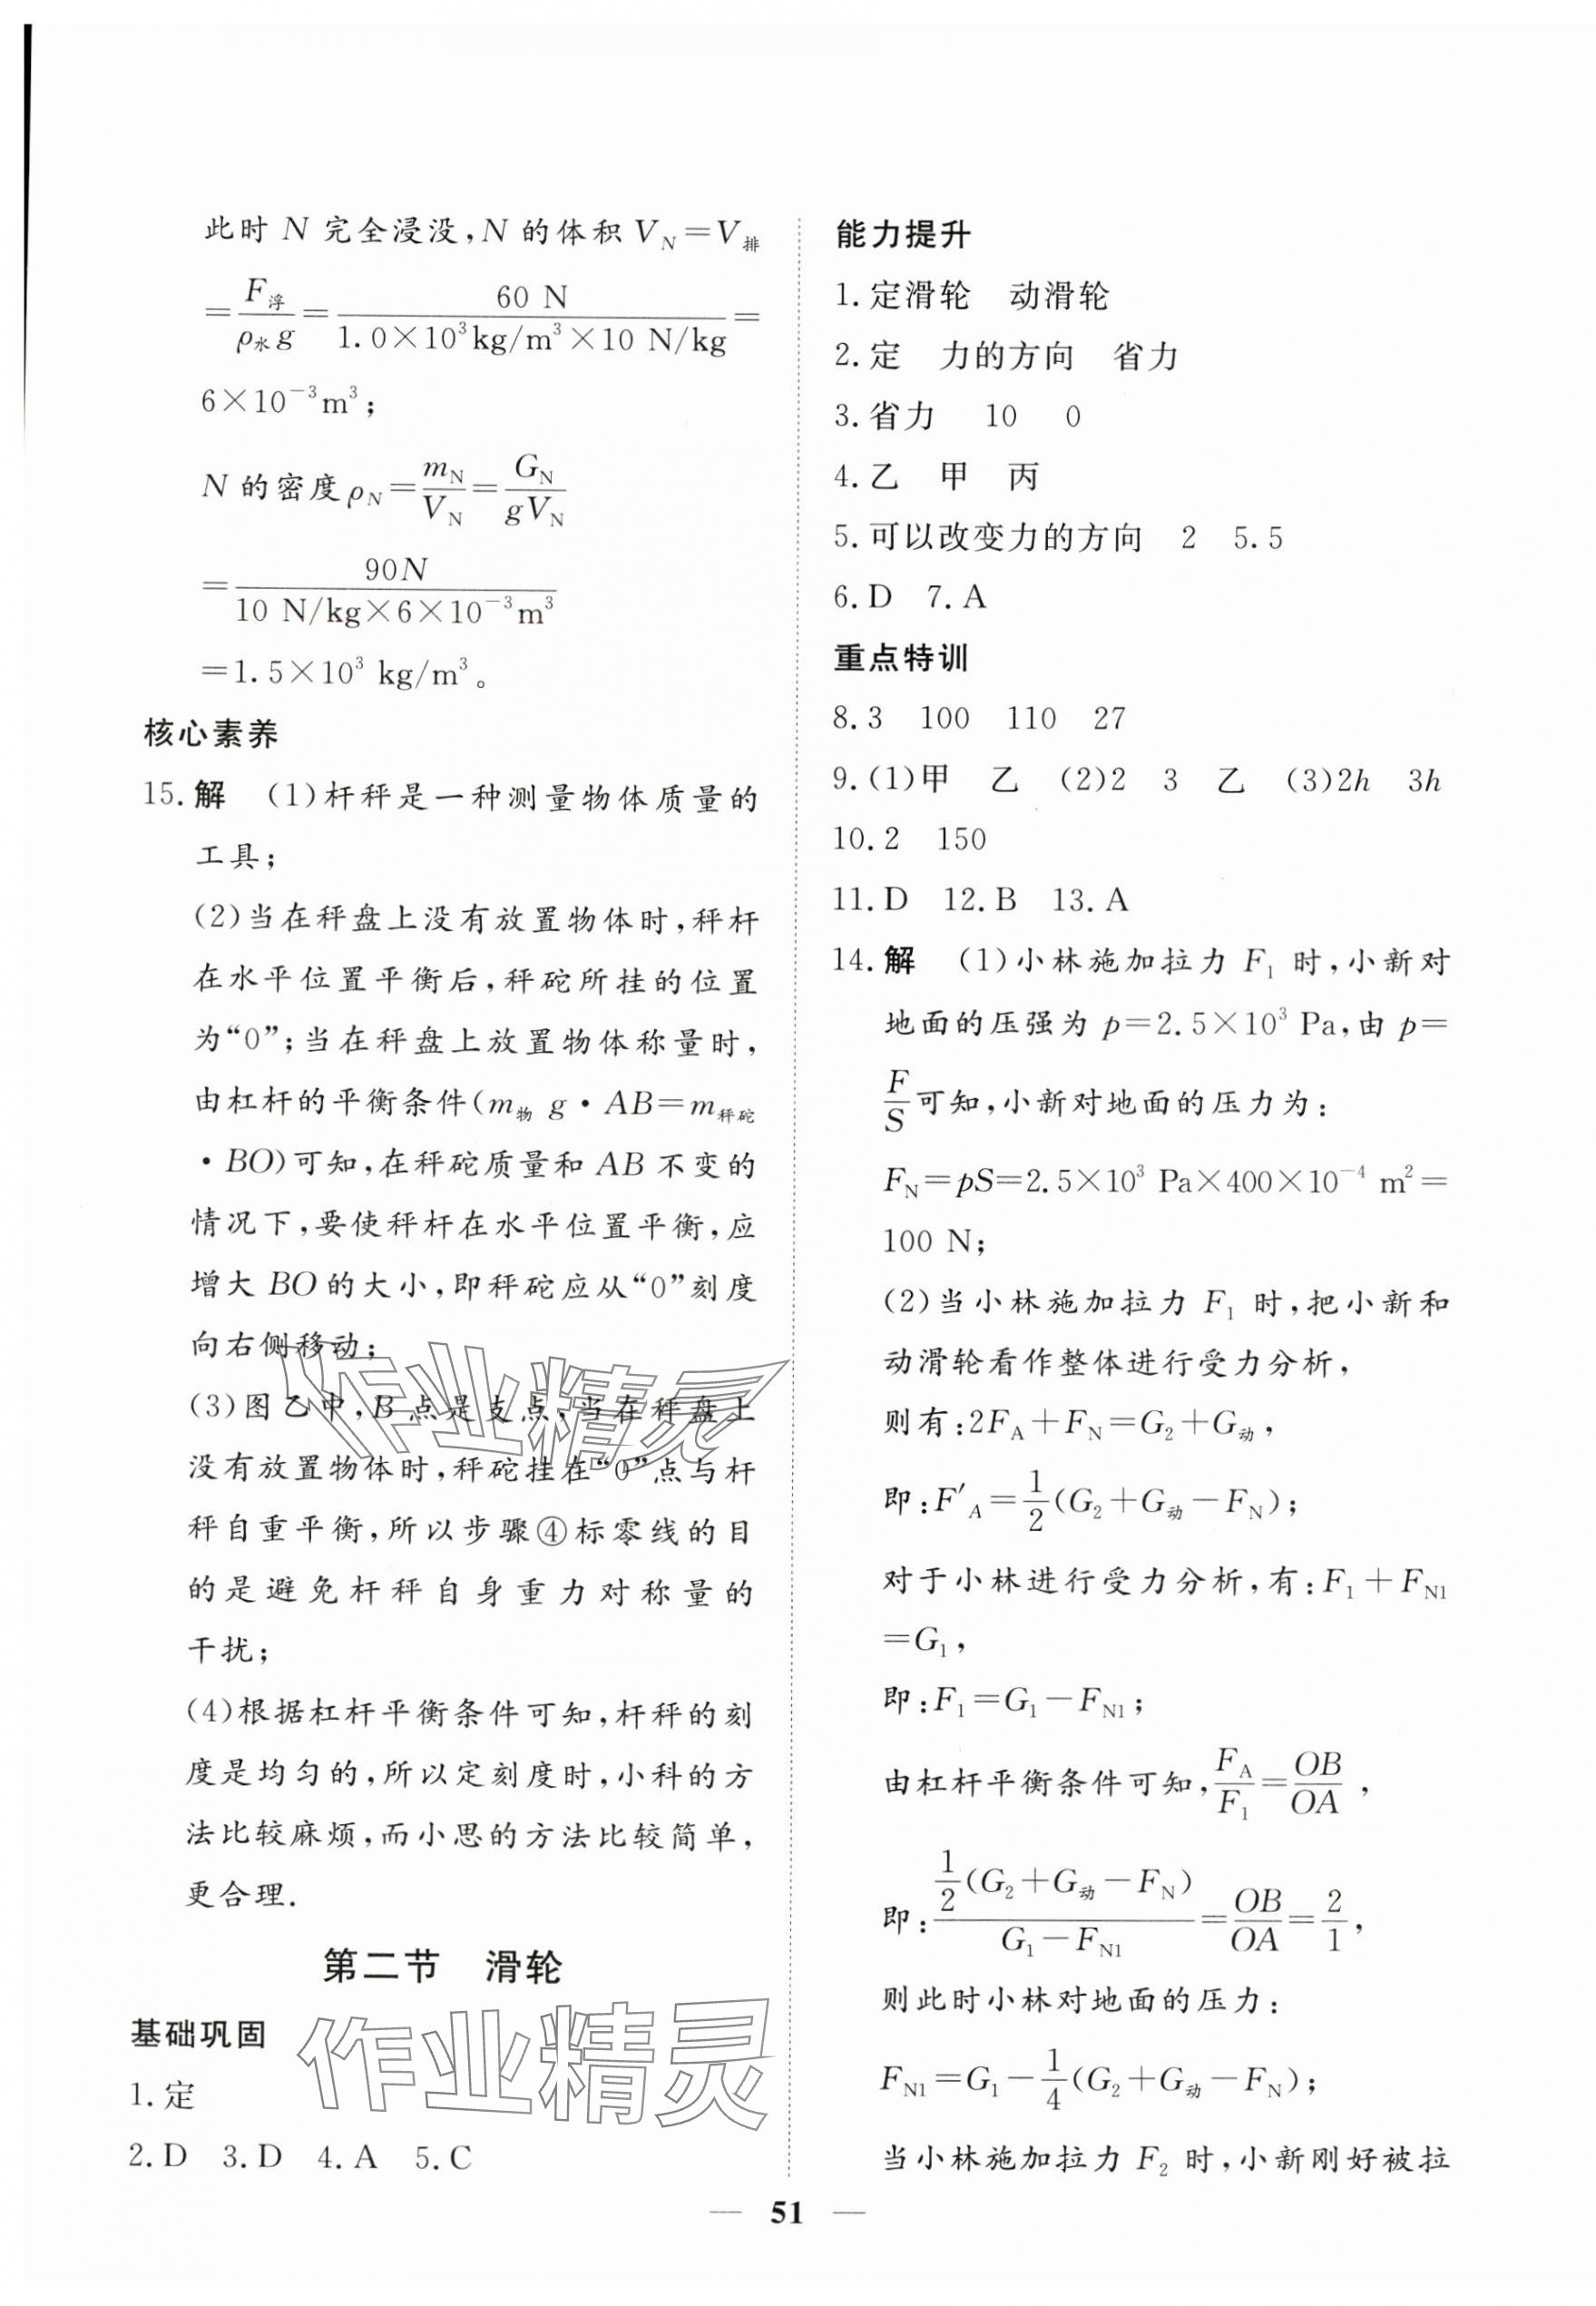 此时 N 完全浸没,N 的体积 V_N=V_排
=F_浮/(ρ_水 g)=60 N/(1.0×10³kg/m³×10 N/kg)=
6×10⁻³m³;
N 的密度 ρ_N=m_N/V_N=G_N/(gV_N)
=90N/(10 N/kg×6×10⁻³m³)
=1.5×10³ kg/m³。
核心素养
15.解 (1)杆秤是一种测量物体质量的
工具;
(2)当在秤盘上没有放置物体时,秤杆
在水平位置平衡后,秤砣所挂的位置
为“0”;当在秤盘上放置物体称量时,
由杠杆的平衡条件(m_物 g·AB=m_秤砣
·BO)可知,在秤砣质量和 AB 不变的
情况下,要使秤杆在水平位置平衡,应
增大 BO 的大小,即秤砣应从“0”刻度
向右侧移动;
(3)图乙中,B 点是支点,当在秤盘上
没有放置物体时,秤砣挂在“0”点与杆
秤自重平衡,所以步骤④标零线的目
的是避免杆秤自身重力对称量的
干扰;
(4)根据杠杆平衡条件可知,杆秤的刻
度是均匀的,所以定刻度时,小科的方
法比较麻烦,而小思的方法比较简单,
更合理.
第二节 滑轮
基础巩固
1.定
2.D 3.D 4.A 5.C
能力提升
1.定滑轮 动滑轮
2.定 力的方向 省力
3.省力 10 0
4.乙 甲 丙
5.可以改变力的方向 2 5.5
6.D 7.A
重点特训
8.3 100 110 27
9.(1)甲 乙 (2)2 3 乙 (3)2h 3h
10.2 150
11.D 12.B 13.A
14.解 (1)小林施加拉力 F₁ 时,小新对
地面的压强为 p=2.5×10³ Pa,由 p=
F/S可知,小新对地面的压力为:
F_N=pS=2.5×10³ Pa×400×10⁻⁴ m²=
100 N;
(2)当小林施加拉力 F₁ 时,把小新和
动滑轮看作整体进行受力分析,
则有:2F_A+F_N=G₂+G_动,
即:F′_A=1/2(G₂+G_动-F_N);
对于小林进行受力分析,有:F₁+F_N1
=G₁,
即:F₁=G₁-F_N1;
由杠杆平衡条件可知,F_A/F₁=OB/OA,
即:[1/2(G₂+G_动-F_N)]/(G₁-F_N1)=OB/OA=2/1,
则此时小林对地面的压力:
F_N1=G₁-1/4(G₂+G_动-F_N);
当小林施加拉力 F₂ 时,小新刚好被拉
— 51 —
作业精灵
作业精灵